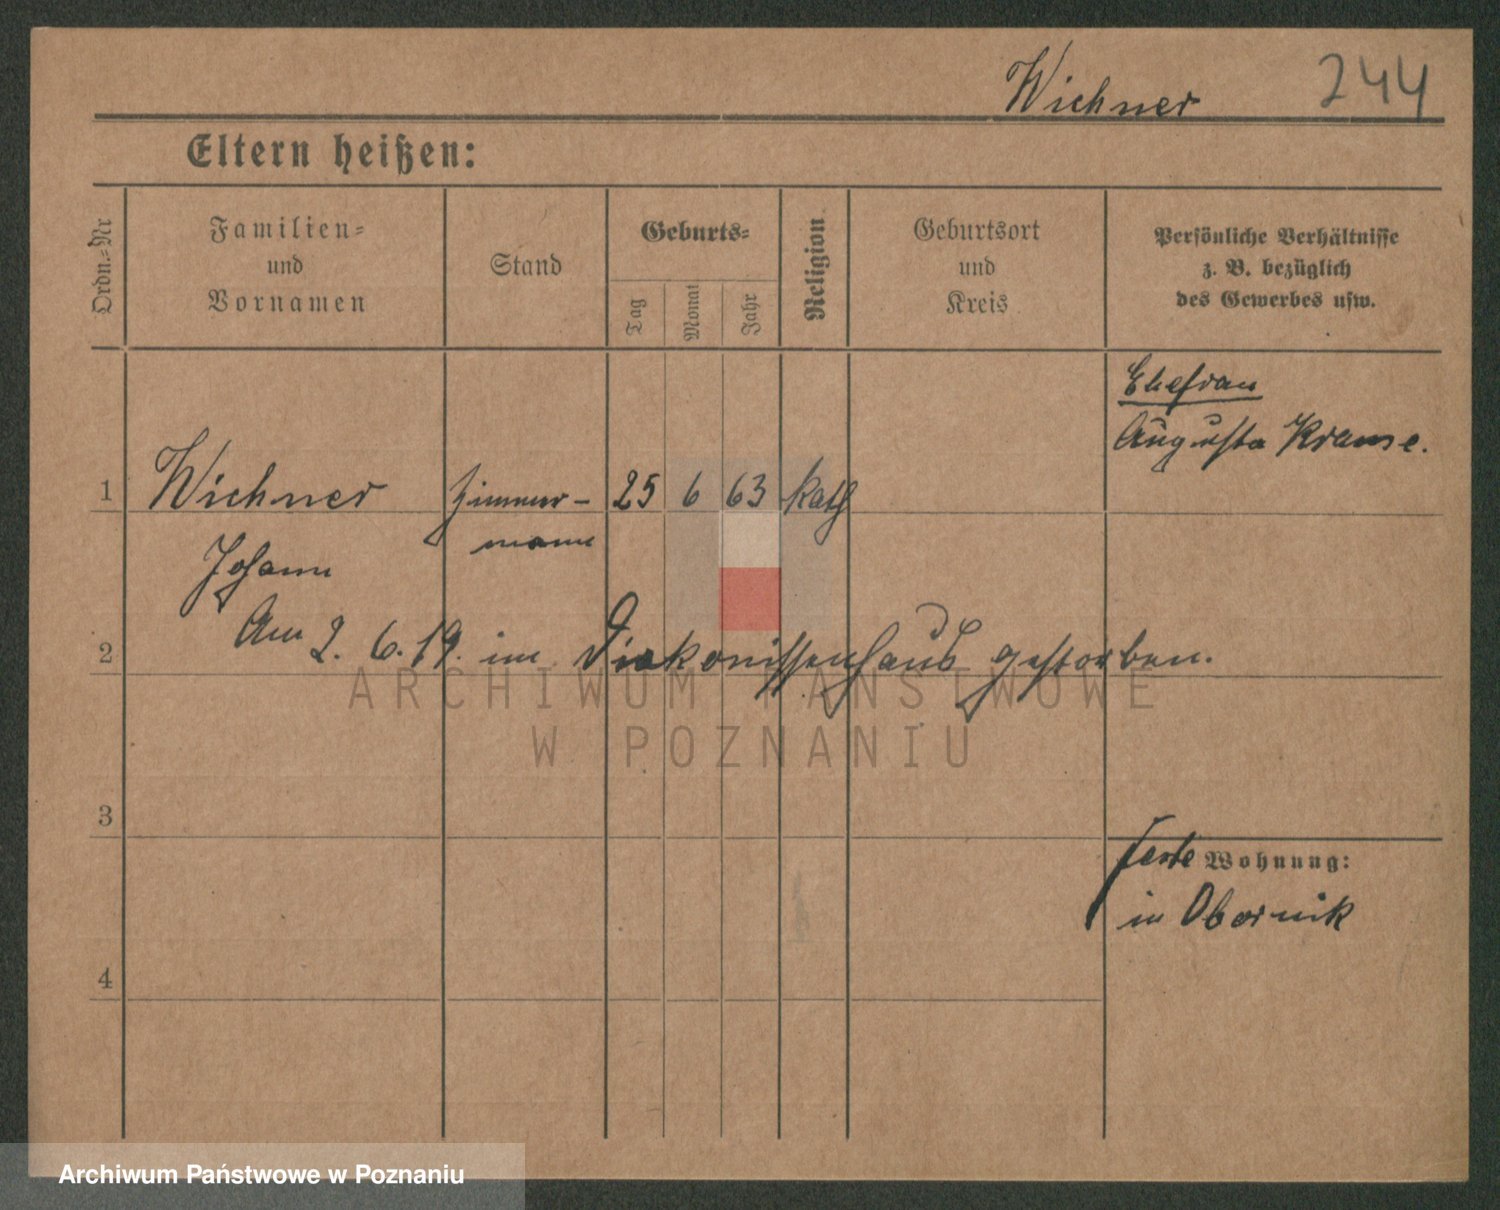 Wichner 244
Eltern heißen:
Ordn.-Nr
Familien- und Vornamen
Stand
Geburts-
Tag
Monat
Jahr
Religion
Geburtsort und Kreis
Persönliche Verhältnisse
z. B. bezüglich
des Gewerbes usw.
Ehefrau
Augusta Krause.
1 Wichner Zimmer- 25 6 63 kath
mann
Johann
Am 2. 6. 19. im Diakonissenhaus gestorben.
2
ARCHIWUM PAŃSTWOWE
W POZNANIU
3
feste Wohnung:
in Obornik
4
Archiwum Państwowe w Poznaniu